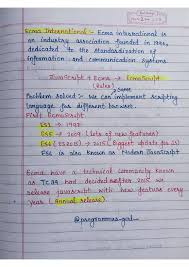 Ecma International :- Ecma international is
an industry association founded in 1961,
dedicated to the standardization of
information and communication systems
JavaScript + Ecma → EcmaScript
(Rules)
Same
Problem Solved :- We can implement scripting
language for different browser.
First EcmaScript
ES1 → 1997
ES5 → 2009 (Lots of new features)
ES6 → (ES2015) → 2015 (Biggest update for JS)
ES6 is also known as Modern JavaScript
Ecma have a technical community known
as TC39 had decided after 2015 we
release javascript with new feature every
year (annual release)